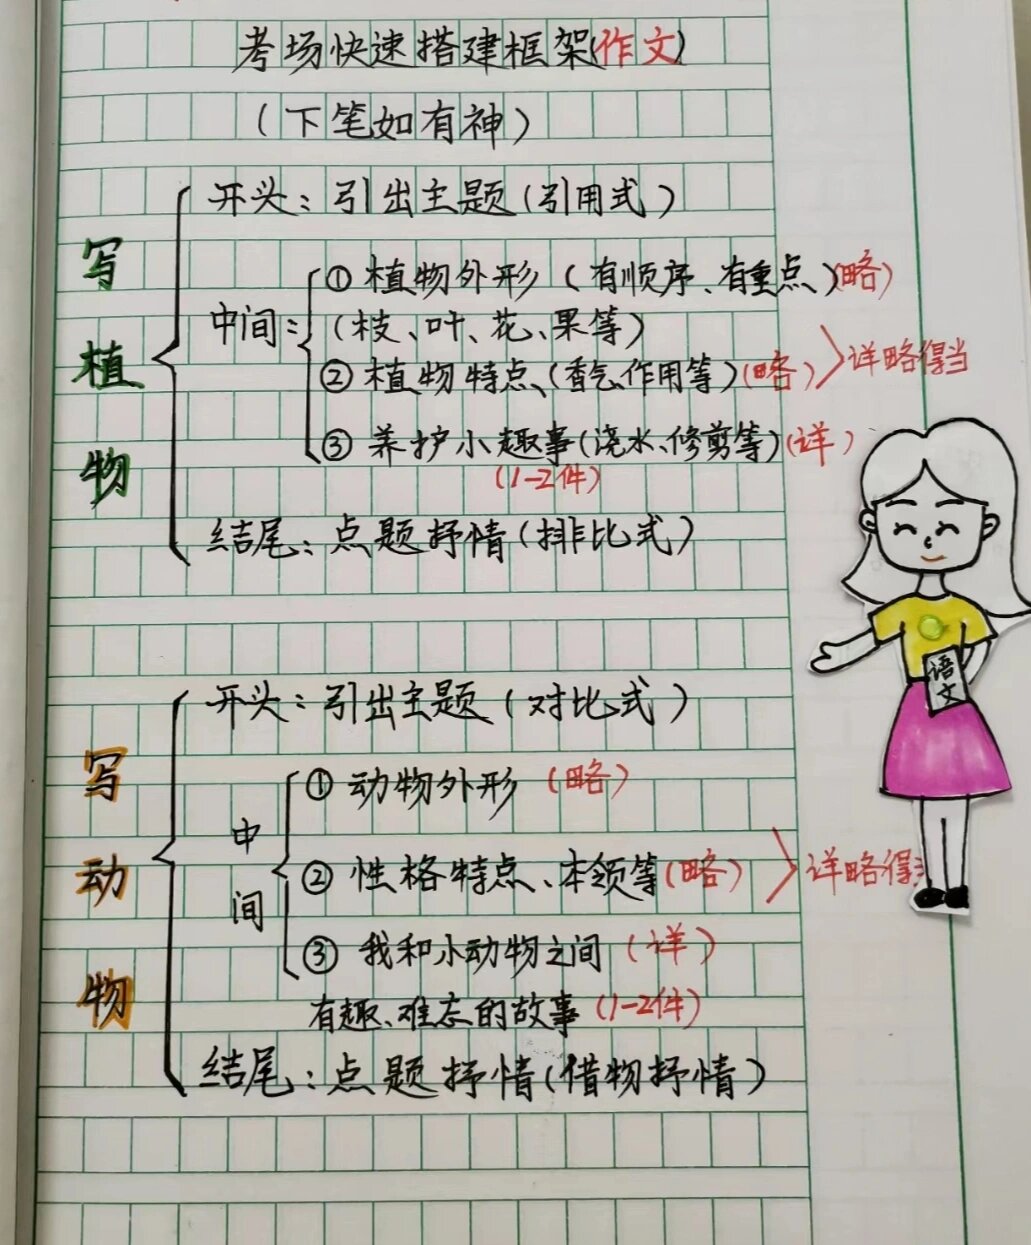 考场快速搭建框架(作文)
(下笔如有神)
写植物
开头：引出主题(引用式)
中间：
①植物外形(有顺序、有重点)(略)
(枝、叶、花、果等)
②植物特点、(香气、作用等)(略)
③养护小趣事(浇水、修剪等)(详)
(1-2件)
详略得当
结尾：点题抒情(排比式)
语文
写动物
开头：引出主题(对比式)
中间
①动物外形(略)
②性格特点、本领等(略)
③我和小动物之间(详)
有趣、难忘的故事(1-2件)
详略得
结尾：点题抒情(借物抒情)